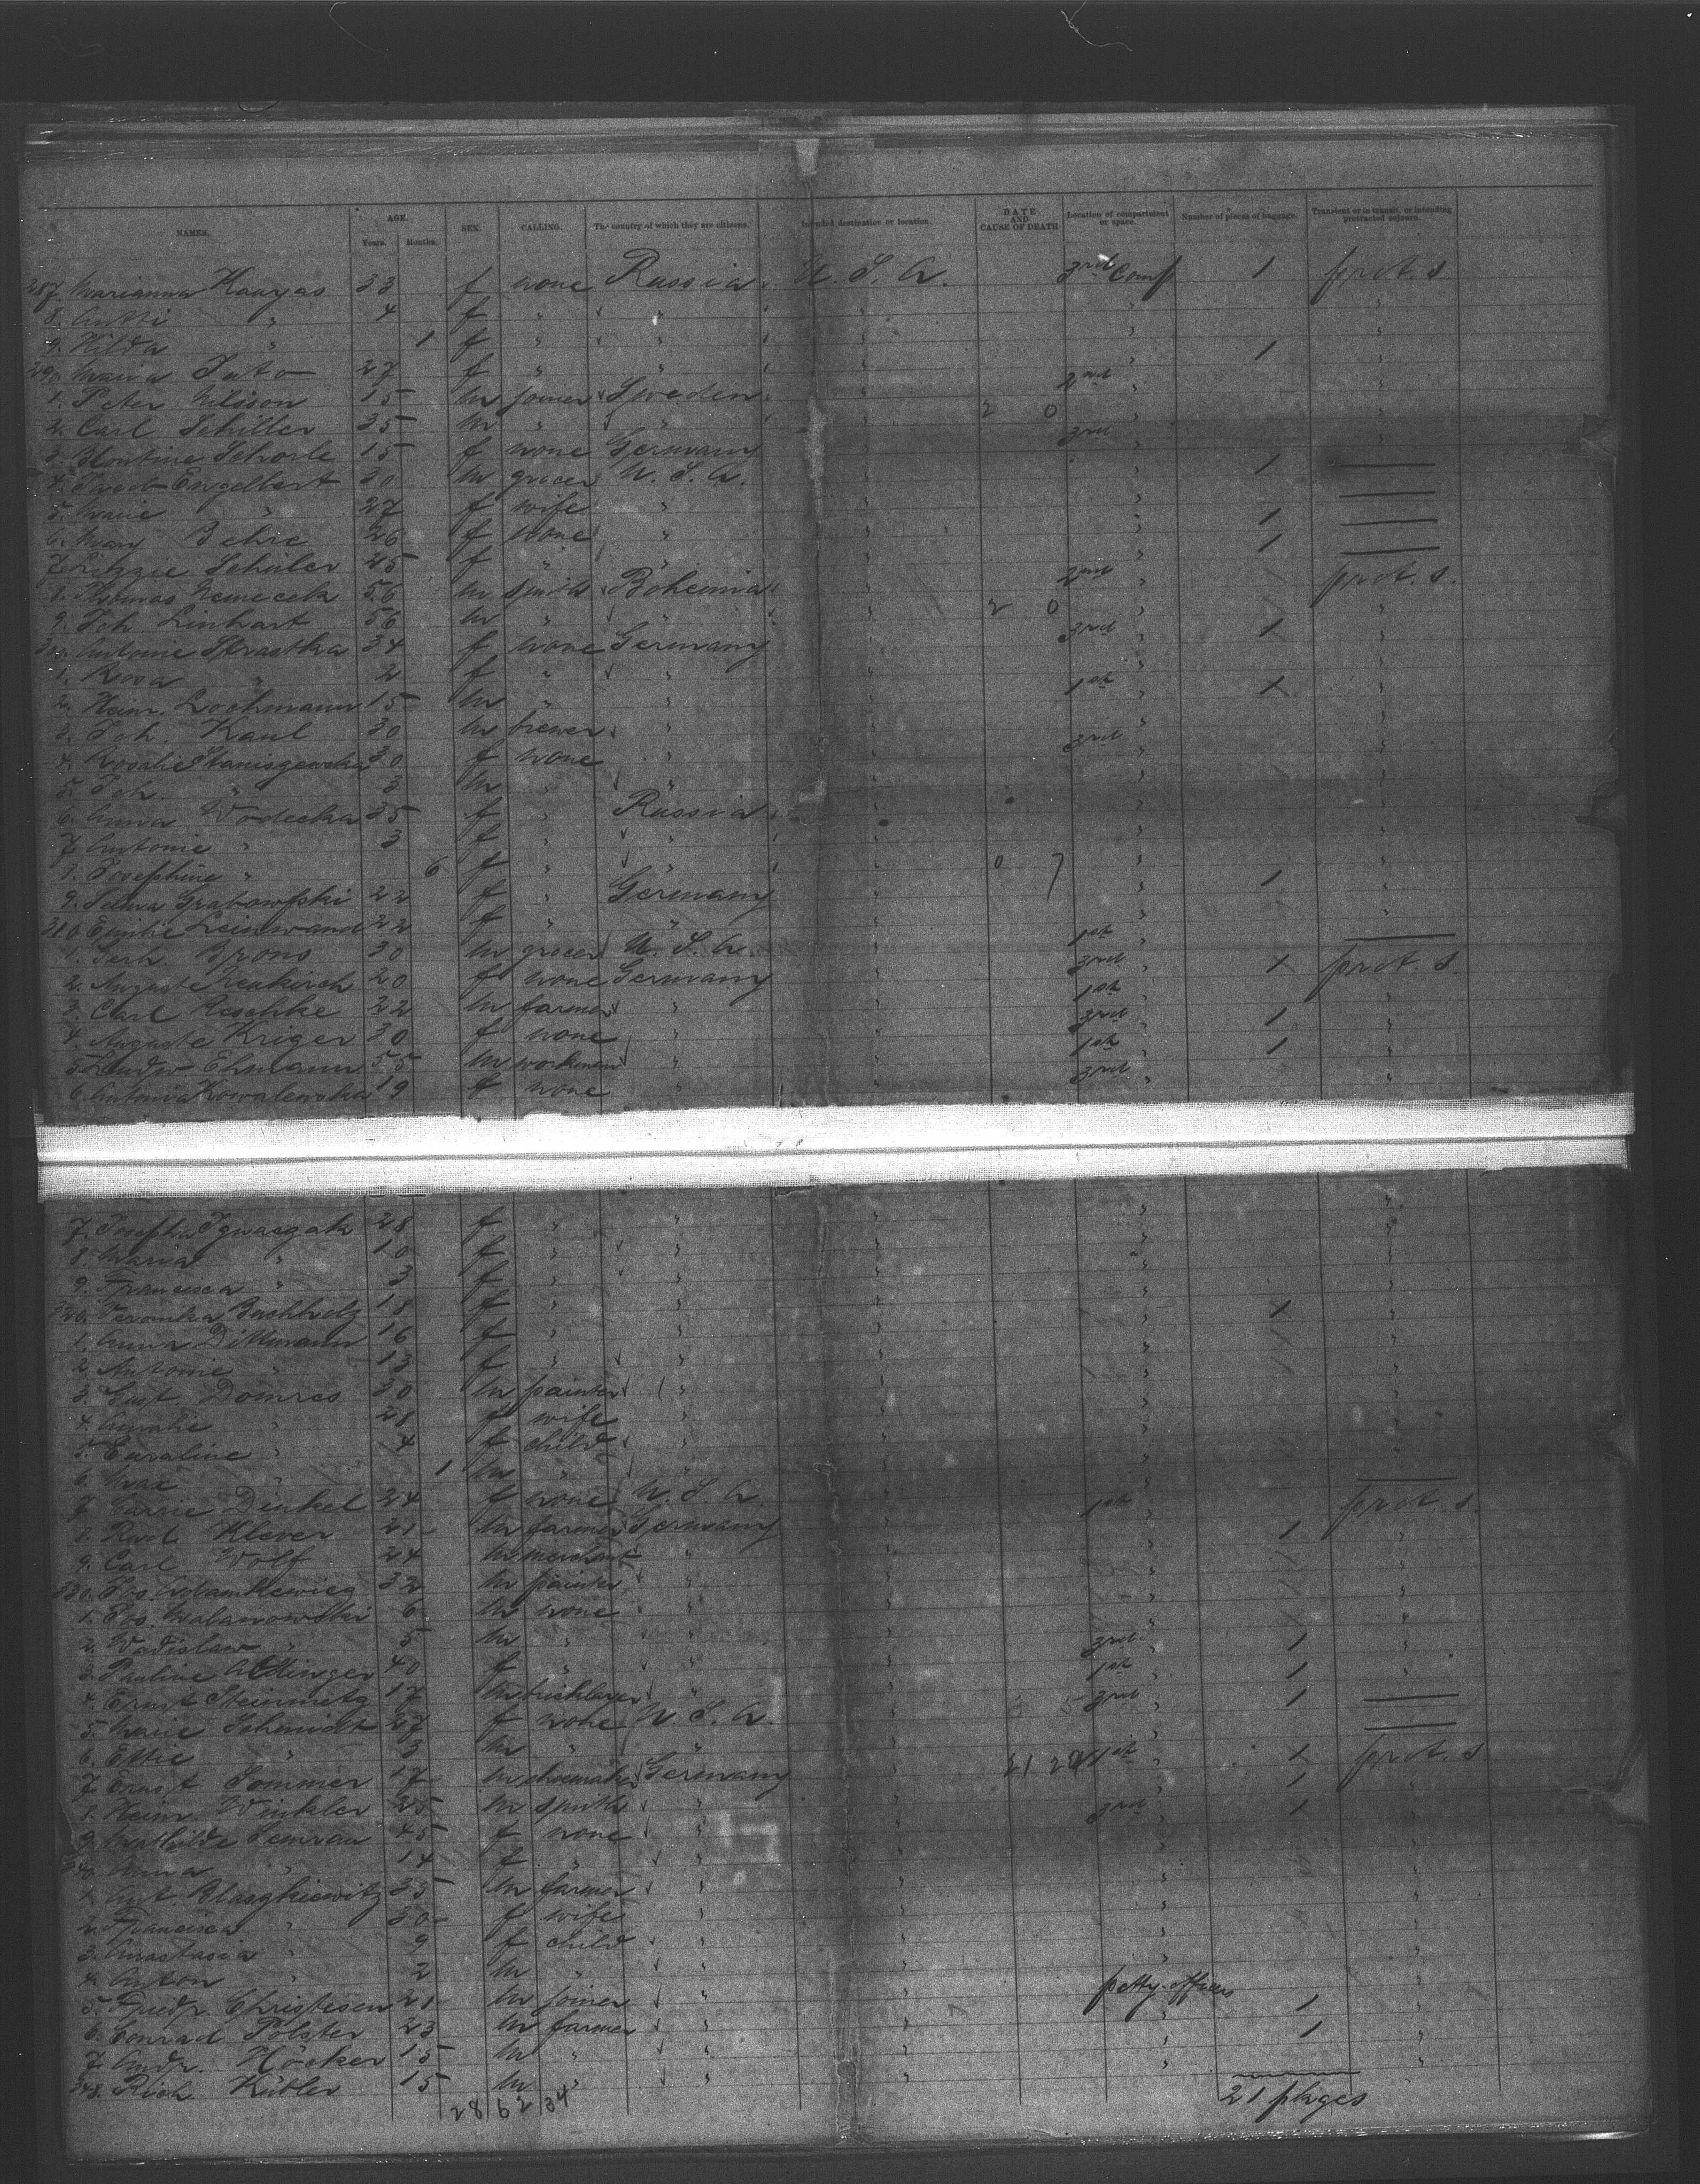 NAMES. AGE. Years. Months. SEX. CALLING. The country of which they are citizens. Intended destination or location. DATE AND CAUSE OF DEATH Location of compartment or space. Number of pieces of baggage. Transient or in transit, or intending protracted sojourn.
287. Marianna Kangas 33 f none Russia U. S. A. 3rd Comp 1 prot. s
8. Antti " 4 f " " " " "
9. Hilda " 1 f " " " " "
290. Maria Juto 27 f " " " " 1 "
1. Peter Nilsson 15 m joiner Sweden " 2nd "
2. Carl Schiller 35 m " " " 2 0 " "
3. Schorle 15 f none Germany " 3rd "
4. Engelbert 30 m grocer U. S. A. " " 1 —
5. Marie " 27 f wife " " " —
6. Mary Behre 26 f none " " " 1 —
7. Lizzie Schüler 45 f " " " " 1 —
8. Thomas Nemecek 56 m smith Bohemia " 2nd " prot. s.
9. Joh Linhart 56 m " " " 2 0 " "
300. Antonie Strastka 34 f none Germany " 3rd " 1 "
1. Rosa " 2 f " " " " "
2. Heinr. Lochmann 15 m " " " 1st " 1 "
3. Joh. Kaul 30 m brewer " " " "
4. Rosalie Staniszewska 30 f none " " 3rd " "
5. Joh. " 3 m " " " " "
6. Anna Vodecka 35 f " Russia " " "
7. Antonie " 3 f " " " " "
8. Josephine " 6 f " " " 0 7 " "
9. Selma Grabowski 22 f " Germany " " 1 "
310. Emilie Leinwand 22 f " " " " "
1. Gerh. Brons 30 m grocer U. S. A. " 1st " —
2. Auguste Neukirch 20 f none Germany " 3rd " 1 prot. s
3. Carl Reschke 22 m farmer " " 1st "
4. Auguste Kriger 30 f none " " 3rd " 1 "
5. Ludw Ehmann 55 m workman " " 1st " 1 "
6. Antonia Kowalewska 19 f none " " 3rd " "
7. Josepha Ignaczak 28 f " " " " "
8. Maria " 10 f " " " " "
9. Francisca " 3 f " " " " "
320. Veronika Buchholz 18 f " " " " 1 "
1. Anna Dittmann 16 f " " " " "
2. Antonie " 13 f " " " " "
3. Gust. Domres 30 m painter " " " "
4. Amalie " 28 f wife " " " "
5. " 4 f child " " " "
6. Max " 1 m " " " " "
7. Carrie Dinkel 24 f none U. S. A. " " —
8. Rud. Klever 21 m farmer Germany " 1st " prot. s.
9. Carl Wolf 24 m merchant " " " 1 "
330. Jos. Adamkewicz 32 m painter " " " "
1. Jos. Malanowski 6 m none " " " "
2. Vadislaw " 5 m " " " " "
3. Pauline 40 f " " " 3rd " 1 "
4. Ernst Steinmetz 17 m bricklayer " " 1st " 1 "
5. Marie Schmidt 27 f none U. S. A. " 3rd " 1 —
6. Ettie " 3 m " " " " —
7. Ernst Sommer 17 m shoemaker Germany " 1st " 1 prot. s
8. Heinr. Winkler 25 m smith " " " 1 "
9. Mathilde Semrau 45 f none " " 3rd " 1 "
340. Anna " 14 f " " " " "
1. Ant. Blaszkiewitz 35 m farmer " " " "
2. Francisca " 30 f wife " " " "
3. Anastasia " 9 f child " " " "
4. Anton " 2 m " " " " "
5. Friedr. Christesen 21 m joiner " " petty-officers 1 "
6. Conrad Polster 23 m farmer " " " 1 "
7. Andr. Höcker 15 m " " " " "
348. Rich. Kübler 15 m " " " " "
28 62 34 21 pkges